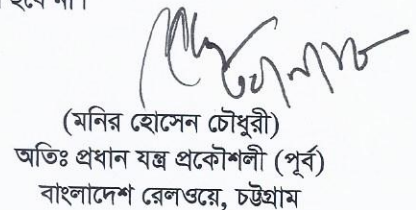 (মনির হোসেন চৌধুরী)
অতিঃ প্রধান যন্ত্র প্রকৌশলী (পূর্ব)
বাংলাদেশ রেলওয়ে, চট্টগ্রাম